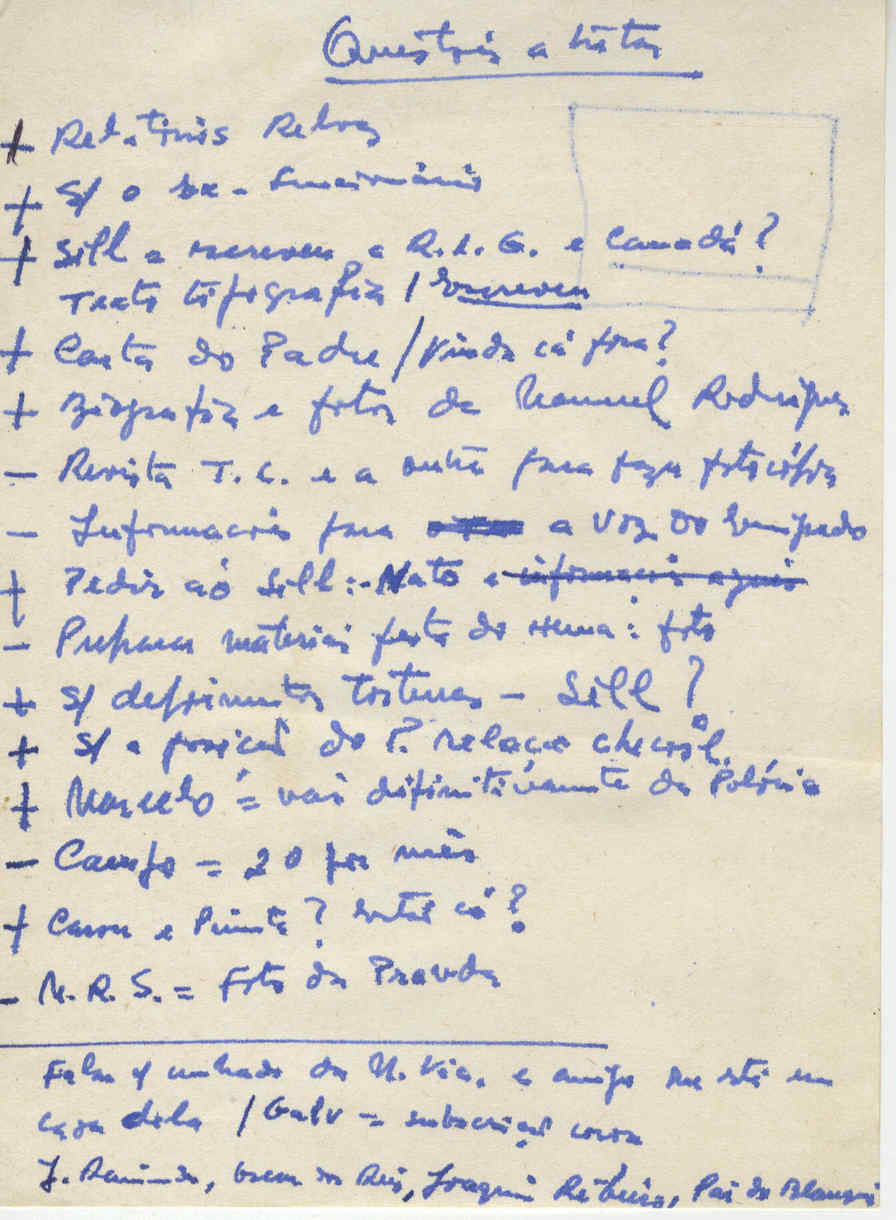 Questões a tratar
+ Relatórios Relvas
+ S/ o ex-funcionário
+ Sill a escreveu a R.L.G. e Canadá?
Texto tipografia / Escreveu
+ Carta do Padre / Vinda cá fora?
+ Biografia e fotos de Manuel Rodrigues
- Revista T. C. e a outra para fazer fotocópia
- Informações para a Voz do Emigrado
+ Pedir ao Sill: - Nato e informações aguas
- Preparar materiais festa do : foto
+ S/ depoimentos torturas - Sill?
+ S/ a posição do P. relação checosl.
+ Marcelo = vai definitivamente da Polónia
- Campo = 20 por mês
+ e Pimenta? cá?
- M. R. S. = Foto da Pravda
Falar c/ cunhado da M. e amigo que está em
casa dela / Galv = subscrição
J. Raimundo, dos Reis, Joaquim Ribeiro, Pai do